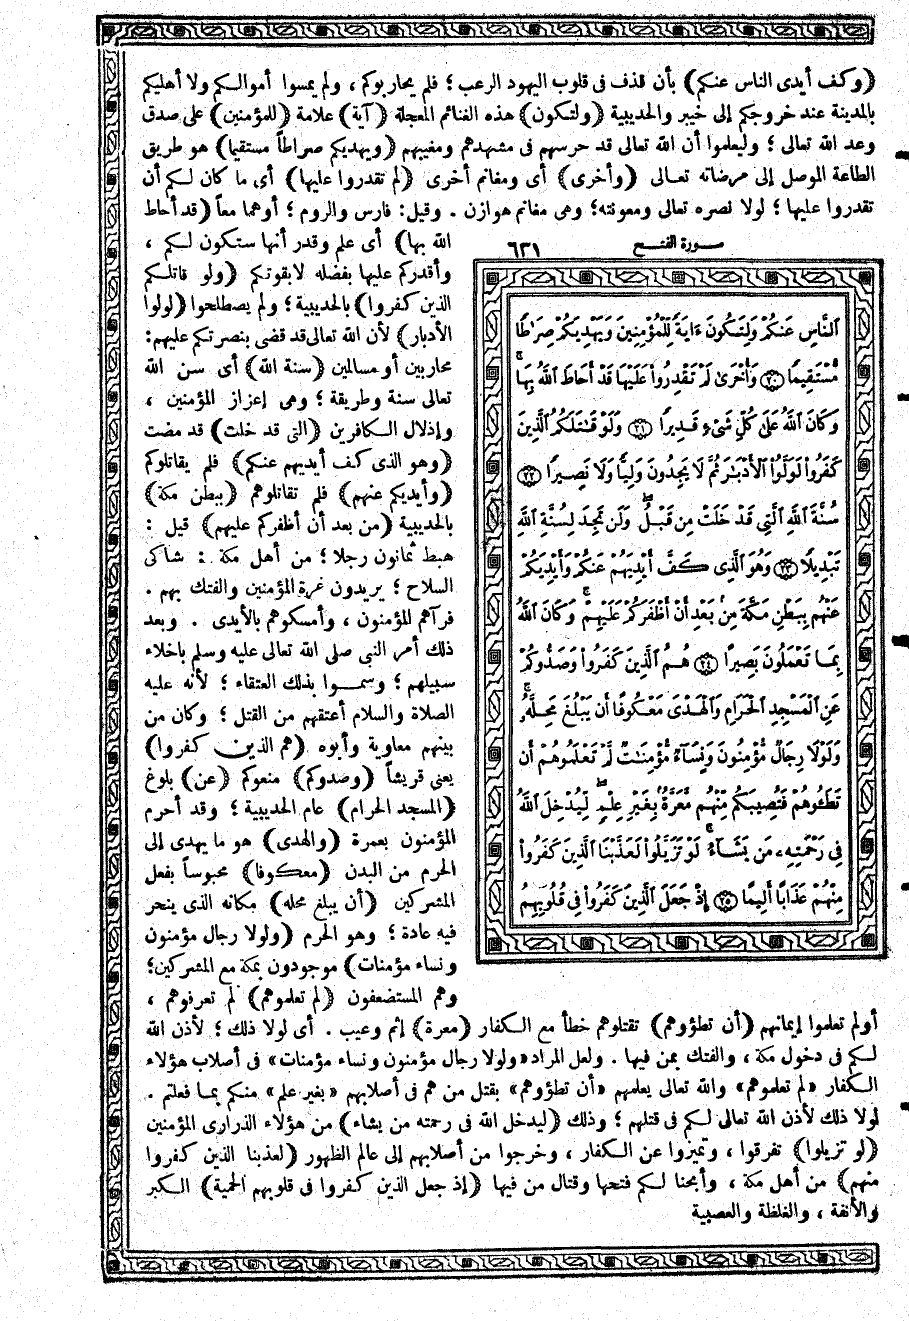 (وكف أيدى الناس عنكم) بأن قذف فى قلوب اليهود الرعب؛ فلم يحاربوكم، ولم يمسوا أموالكم ولا أهليكم
بالمدينة عند خروجكم إلى خيبر والحديبية (ولتكون) هذه الغنائم المعجلة (آية) علامة (للمؤمنين) على صدق
وعد الله تعالى؛ وليعلموا أن الله تعالى قد حرسهم فى مشهدهم ومغيبهم (ويهديكم صراطاً مستقيما) هو طريق
الطاعة الموصل إلى مرضاته تعالى (وأخرى) أى ومغانم أخرى (لم تقدروا عليها) أى ما كان لكم أن
تقدروا عليها؛ لولا نصره تعالى ومعونته؛ وهى مغانم هوازن. وقيل: فارس والروم؛ أوهما معاً (قد أحاط
الله بها) أى علم وقدر أنها ستكون لكم،
وأقدركم عليها بفضله لابقوتكم (ولو قاتلكم
الذين كفروا) بالحديبية؛ ولم يصطلحوا (لولوا
الأدبار) لأن الله تعالى قد قضى بنصرتكم عليهم:
محاربين أو مسالمين (سنة الله) أى سن الله
تعالى سنة وطريقة؛ وهى إعزاز المؤمنين،
وإذلال الكافرين (التى قد خلت) قد مضت
(وهو الذى كف أيديهم عنكم) فلم يقاتلوكم
(وأيديكم عنهم) فلم تقاتلوهم (ببطن مكة)
بالحديبية (من بعد أن أظفركم عليهم) قيل:
هبط ثمانون رجلا؛ من أهل مكة: شاكى
السلاح؛ يريدون غرة المؤمنين والفتك بهم.
فرآهم المؤمنون، وأمسكوهم بالأيدى. وبعد
ذلك أمر النبى صلى الله تعالى عليه وسلم باخلاء
سبيلهم؛ وسموا بذلك العتقاء؛ لأنه عليه
الصلاة والسلام أعتقهم من القتل؛ وكان من
بينهم معاوية وأبوه (هم الذين كفروا)
يعنى قريشاً (وصدوكم) منعوكم (عن) بلوغ
(المسجد الحرام) عام الحديبية؛ وقد أحرم
المؤمنون بعمرة (والهدى) هو ما يهدى إلى
الحرم من البدن (معكوفا) محبوساً بفعل
المشركين (أن يبلغ محله) مكانه الذى ينحر
فيه عادة؛ وهو الحرم (ولولا رجال مؤمنون
ونساء مؤمنات) موجودون بمكة مع المشركين؛
وهم المستضعفون (لم تعلموهم) لم تعرفوهم،
سورة الفتح ٦٣١
ٱلنَّاسِ عَنكُمْ وَلِتَكُونَ ءَايَةً لِّلْمُؤْمِنِينَ وَيَهْدِيَكُمْ صِرَٰطًا
مُّسْتَقِيمًا ٢٠ وَأُخْرَىٰ لَمْ تَقْدِرُوا۟ عَلَيْهَا قَدْ أَحَاطَ ٱللَّهُ بِهَا ۚ
وَكَانَ ٱللَّهُ عَلَىٰ كُلِّ شَىْءٍ قَدِيرًا ٢١ وَلَوْ قَٰتَلَكُمُ ٱلَّذِينَ
كَفَرُوا۟ لَوَلَّوُا۟ ٱلْأَدْبَٰرَ ثُمَّ لَا يَجِدُونَ وَلِيًّا وَلَا نَصِيرًا ٢٢
سُنَّةَ ٱللَّهِ ٱلَّتِى قَدْ خَلَتْ مِن قَبْلُ ۖ وَلَن تَجِدَ لِسُنَّةِ ٱللَّهِ
تَبْدِيلًا ٢٣ وَهُوَ ٱلَّذِى كَفَّ أَيْدِيَهُمْ عَنكُمْ وَأَيْدِيَكُمْ
عَنْهُم بِبَطْنِ مَكَّةَ مِنۢ بَعْدِ أَنْ أَظْفَرَكُمْ عَلَيْهِمْ ۚ وَكَانَ ٱللَّهُ
بِمَا تَعْمَلُونَ بَصِيرًا ٢٤ هُمُ ٱلَّذِينَ كَفَرُوا۟ وَصَدُّوكُمْ
عَنِ ٱلْمَسْجِدِ ٱلْحَرَامِ وَٱلْهَدْىَ مَعْكُوفًا أَن يَبْلُغَ مَحِلَّهُۥ ۚ
وَلَوْلَا رِجَالٌ مُّؤْمِنُونَ وَنِسَآءٌ مُّؤْمِنَٰتٌ لَّمْ تَعْلَمُوهُمْ أَن
تَطَـُٔوهُمْ فَتُصِيبَكُم مِّنْهُم مَّعَرَّةٌۢ بِغَيْرِ عِلْمٍ ۖ لِّيُدْخِلَ ٱللَّهُ
فِى رَحْمَتِهِۦ مَن يَشَآءُ ۚ لَوْ تَزَيَّلُوا۟ لَعَذَّبْنَا ٱلَّذِينَ كَفَرُوا۟
مِنْهُمْ عَذَابًا أَلِيمًا ٢٥ إِذْ جَعَلَ ٱلَّذِينَ كَفَرُوا۟ فِى قُلُوبِهِمُ
أولم تعلموا إيمانهم (أن تطؤوهم) تقتلوهم خطأ مع الكفار (معرة) إثم وعيب. أى لولا ذلك؛ لأذن الله
لكم فى دخول مكة، والفتك بمن فيها. ولعل المراد «ولولا رجال مؤمنون ونساء مؤمنات» فى أصلاب هؤلاء
الكفار «لم تعلموهم» والله تعالى يعلمهم «أن تطؤوهم» بقتل من هم فى أصلابهم «بغير علم» منكم بما فعلتم.
لولا ذلك لأذن الله تعالى لكم فى قتلهم؛ وذلك (ليدخل الله فى رحمته من يشاء) من هؤلاء الذرارى المؤمنين
(لو تزيلوا) تفرقوا، وتميزوا عن الكفار، وخرجوا من أصلابهم إلى عالم الظهور (لعذبنا الذين كفروا
منهم) من أهل مكة، وأبحنا لكم فتحها وقتال من فيها (إذ جعل الذين كفروا فى قلوبهم الحمية) الكبر
والأنفة، والغلظة والعصبية